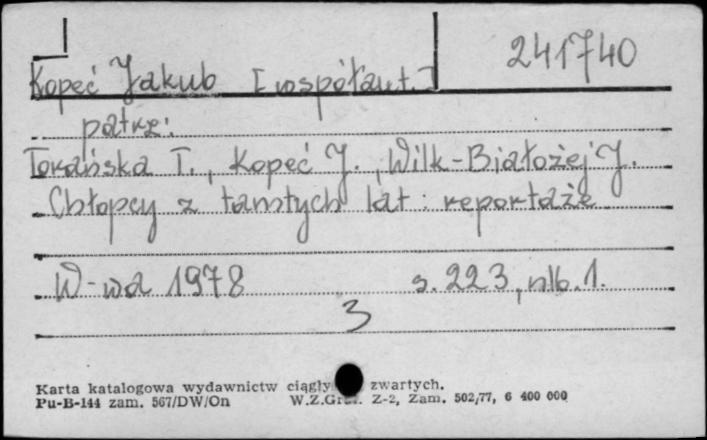 241740
Kopeć Jakub [współaut.]
patrz:
Torańska T., Kopeć J., Wilk-Białożej J.
Chłopcy z tamtych lat : reportaże
W-wa 1978 s. 223, nlb. 1.
3
Karta katalogowa wydawnictw zwartych.
Pu-B-144 zam. 567/DW/On Z-2, Zam. 502/77, 6 400 000